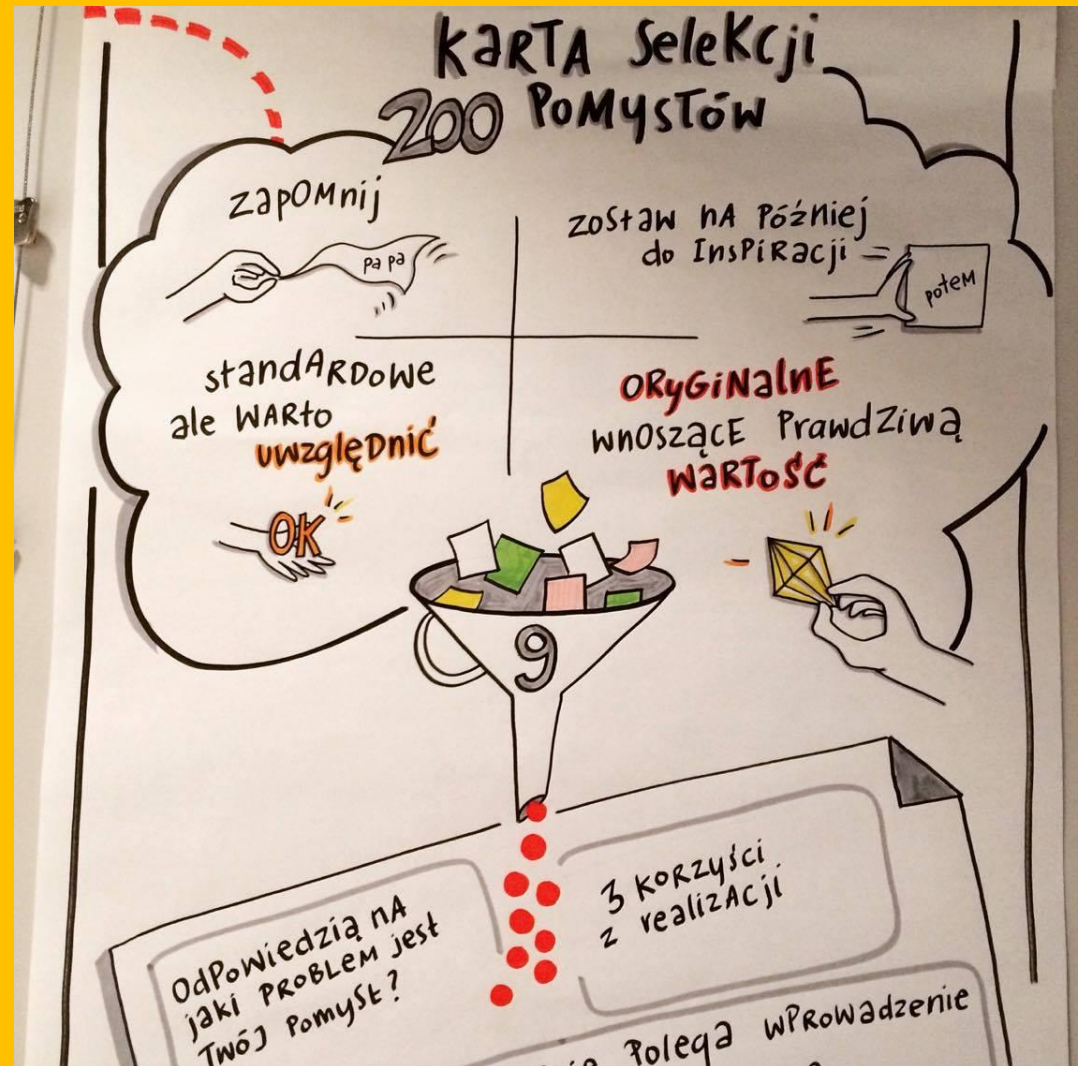 KARTA SeleKcji
200 PoMysłów
zapOMnij
Pa Pa
zoStaw nA Później
do InsPiRacji
potem
standARDowe
ale WARto
uwzglęDnić
OK
ORyGiNalnE
wnoszącE PrawdZiwą
WaRToŚĆ
9
OdPowiedzią nA
jaki PRoBLeM jest
Twój Pomysł?
3 KoRzyści
z realizAcji
Polega wPRowadzenie